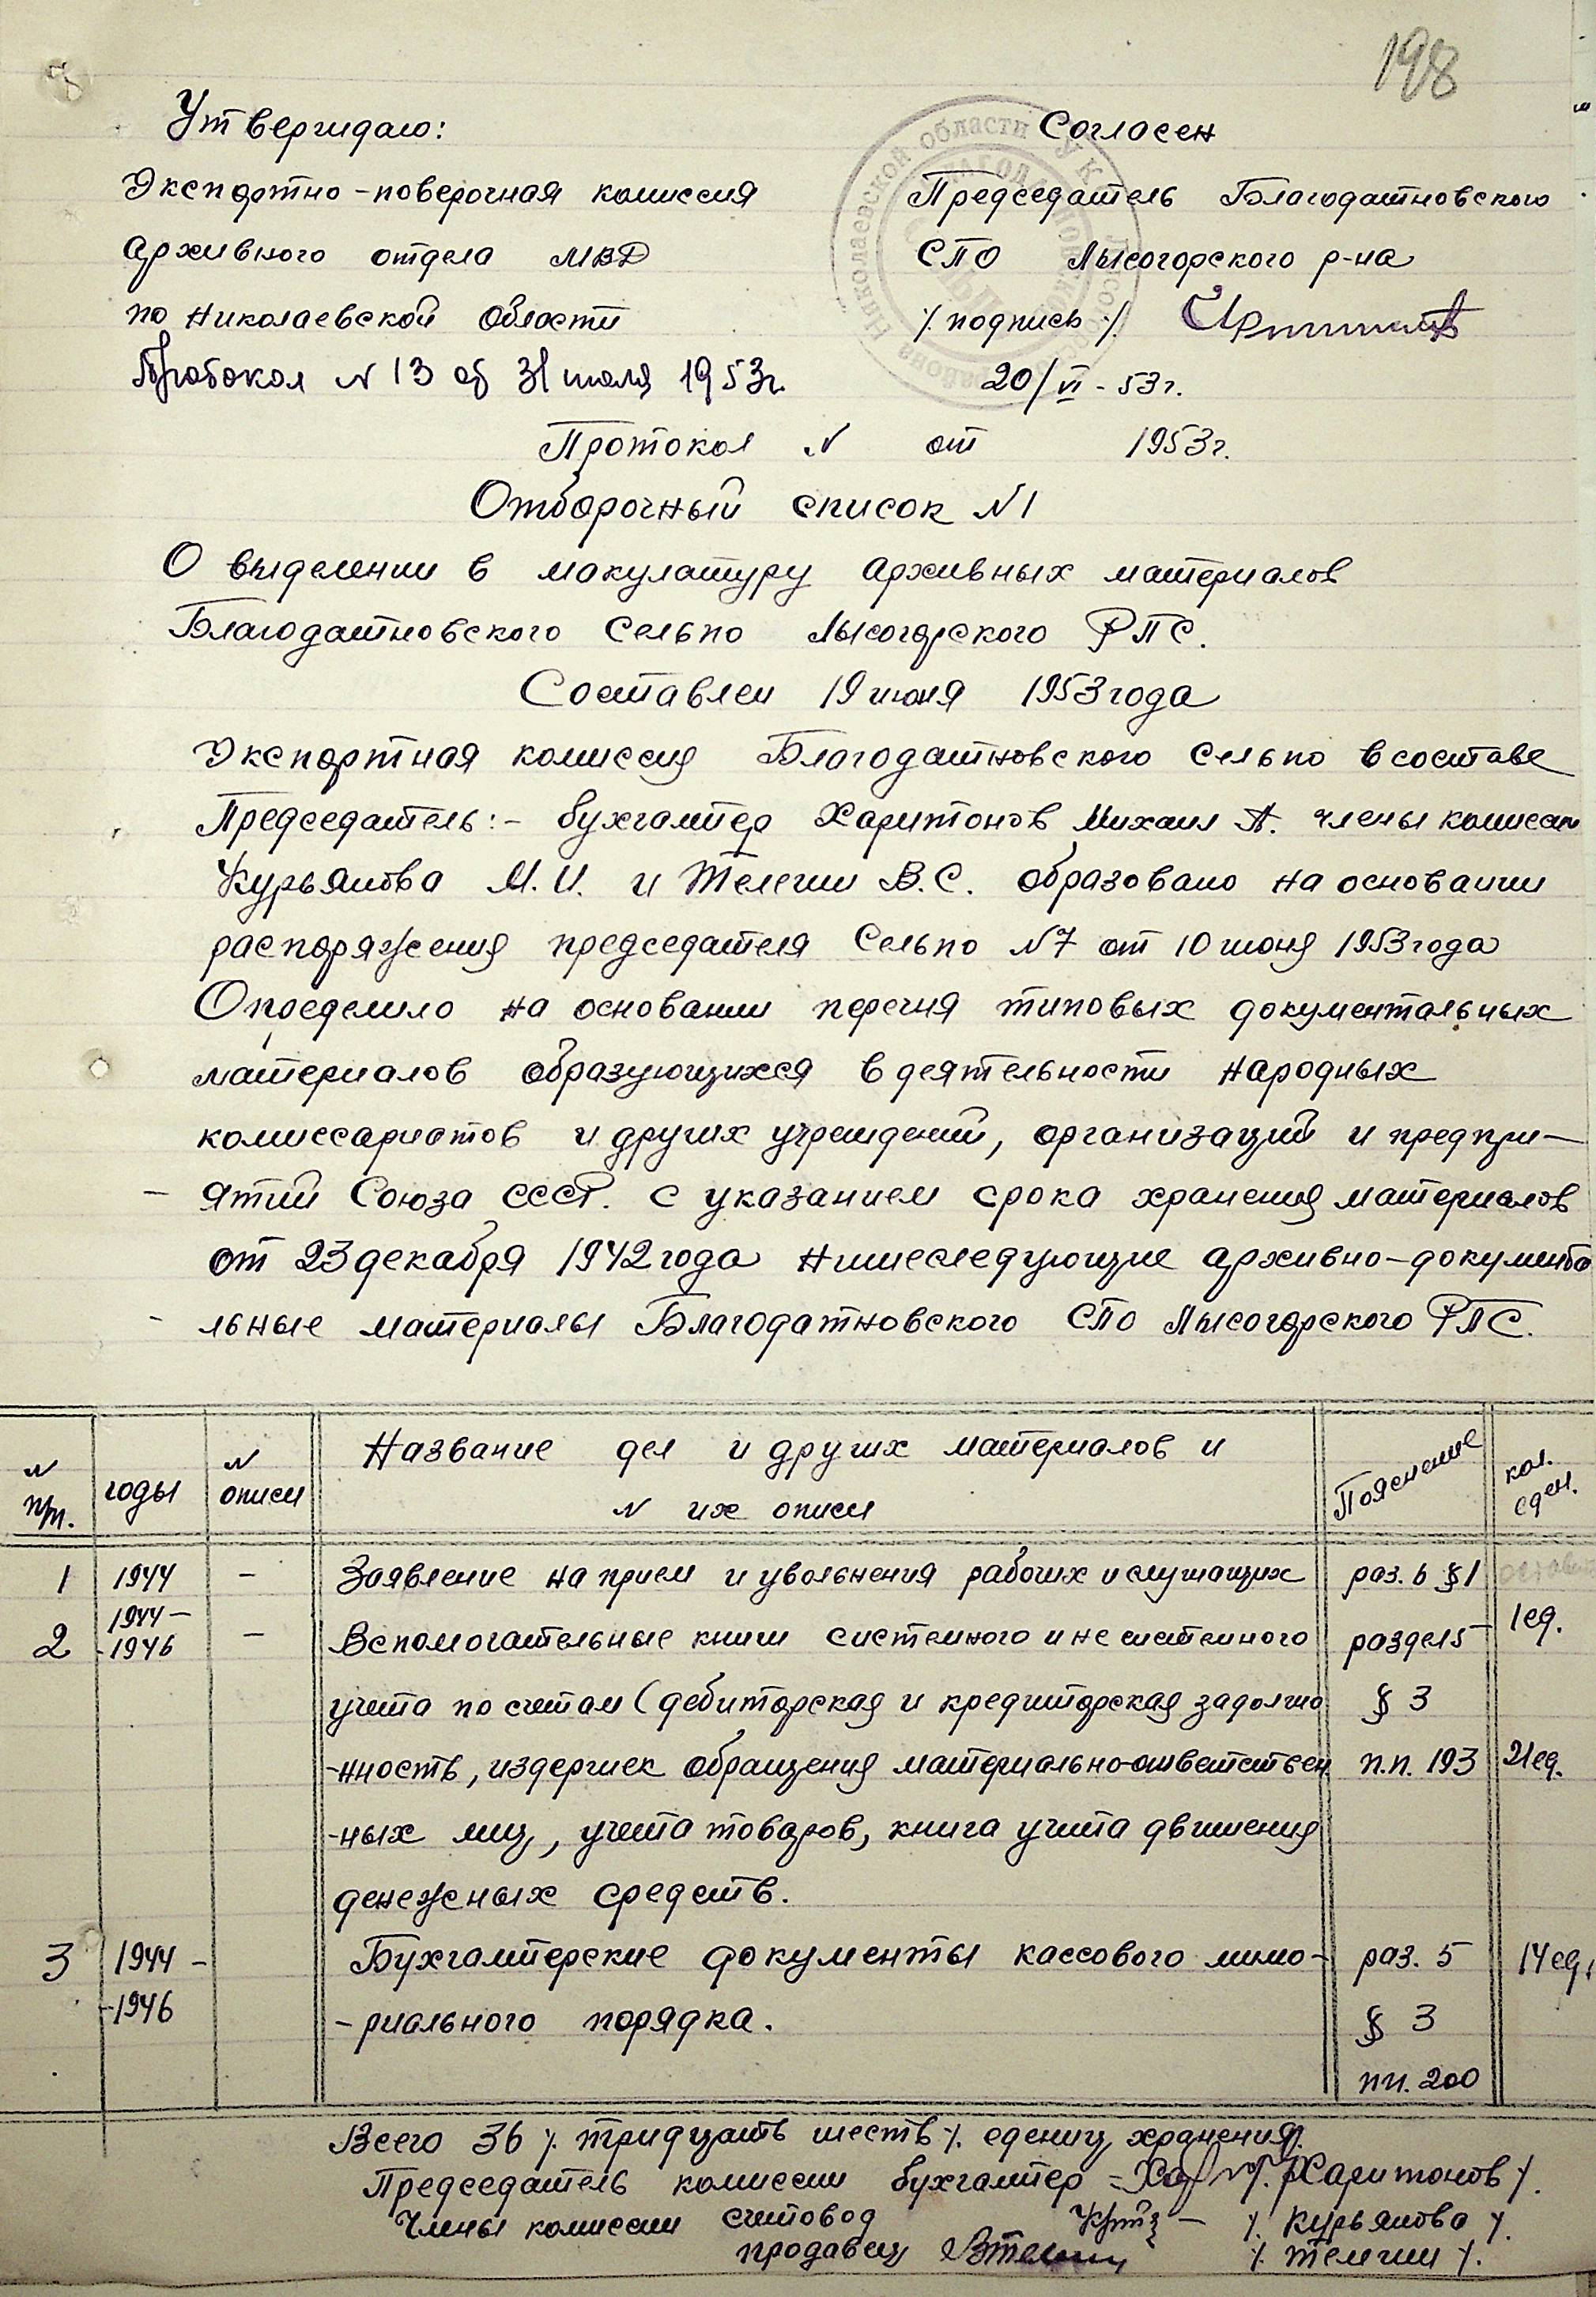 198
Утверждаю:
Экспертно-поверочная комиссия
Архивного отдела МВД
по Николаевской области
Протокол N 13 от 31 июля 1953г.
Согласен
Председатель Благодатновского
СПО Лысогорского р-на
/. подпись /.
20/VI - 53г.
Николаевской области
Протокол N от 1953г.
Отборочный список N1
О выделении в макулатуру архивных материалов
Благодатновского Сельпо Лысогорского РПС.
Составлен 19 июня 1953 года
Экспертная комиссия Благодатновского Сельпо в составе
Председатель:- бухгалтер Харитонов Михаил А. члены комиссии
Курьянова М.И. и Телегин В.С. образовано на основании
распоряжения председателя Сельпо N7 от 10 июня 1953 года
Определило на основании перечня типовых документальных
материалов образующихся в деятельности народных
комиссариатов и других учреждений, организаций и предпри-
- ятий Союза ССР. с указанием срока хранения материалов
от 23 декабря 1942 года нижеследующие архивно-документа
- льные материалы Благодатновского СПО Лысогорского РПС.
N п/п. годы N описи Название дел и других материалов и N их описи Пояснение кол. еден.
1 1944 - Заявление на прием и увольнения рабочих и служащих раз. 6 §1
2 1944- -1946 - Вспомогательные книги системного и не системного раздел 5 1ед.
учета по счетам (дебиторская и кредиторская задолжно § 3
-нность, издержек обращения материально-ответствен п.п. 193 21ед.
-ных лиц, учета товаров, книга учета движения
денежных средств.
3 1944 - Бухгалтерские документы кассового мимо- раз. 5 14ед.
-1946 -риального порядка. § 3
пп. 200
Всего 36 /. тридцать шесть /. едениц хранения.
Председатель комиссии бухгалтер = /. Харитонов /.
Члены комиссии счетовод - /. Курьянова /.
продавец ВТелегин /. Телегин /.